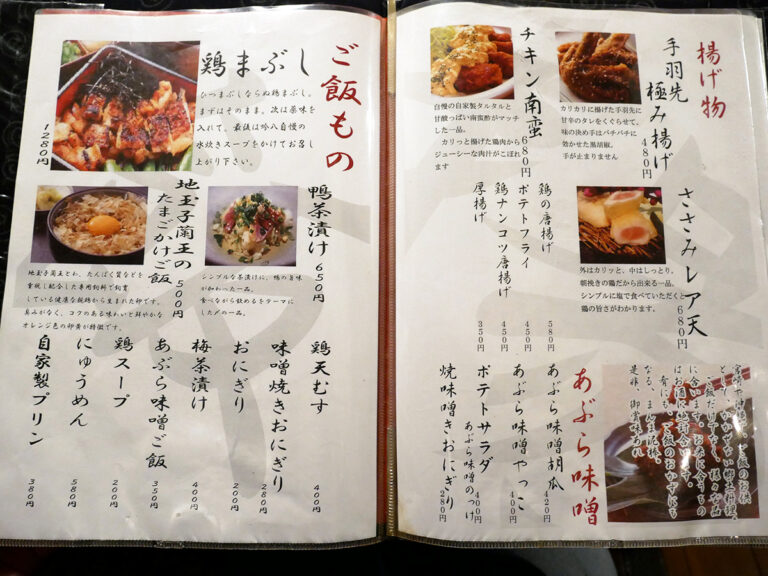 揚げ物
手羽先
極み揚げ
480円
カリカリに揚げた手羽先に
甘辛のタレをくぐらせて、
味の決め手はバチバチに
効かせた黒胡椒。
手が止まりません
チキン南蛮
680円
自慢の自家製タルタルと
甘酸っぱい南蛮酢がマッチ
した一品。
カリッと揚げた鶏肉から
ジューシーな肉汁がこぼれ
ます
ささみレア天
680円
外はカリッと、中はしっとり。
朝挽きの鶏だから出来る一品。
シンプルに塩で食べていただくと
鶏の旨さがわかります。
鶏の唐揚げ
580円
ポテトフライ
450円
鶏ナンコツ唐揚げ
450円
厚揚げ
350円
あぶら味噌
ご飯だけでなく、様々な品
に合います。お茶に合うもの
はお酒にも絶対合います。
肴にも、ご飯のおかずにも
なる、まんま泥棒。
是非、御賞味あれ
あぶら味噌胡瓜
420円
あぶら味噌やっこ
400円
ポテトサラダ
あぶら味噌のっけ
400円
焼味噌きおにぎり
280円
ご飯もの
鶏まぶし
ひつまぶしならぬ鶏まぶし。
まずはそのまま。次は薬味を
入れて。最後は吟八自慢の
水炊きスープをかけてお召し
上がり下さい。
1280円
鴨茶漬け
650円
シンプルな茶漬けに、鴨の旨味
が加わった一品。
食べながら飲めるをテーマに
した〆の一品。
地玉子蘭王の
たまごかけご飯
500円
地玉子蘭王とわ、たんぱく質などを
重視し配合した専用飼料で飼育
している健康な親鶏から生まれた卵です。
臭みがなく、コクのある味わいと鮮やかな
オレンジ色の卵黄が特徴です。
鶏天むす
400円
味噌焼きおにぎり
280円
おにぎり
200円
梅茶漬け
400円
あぶら味噌ご飯
350円
鶏スープ
200円
にゅうめん
580円
自家製プリン
380円